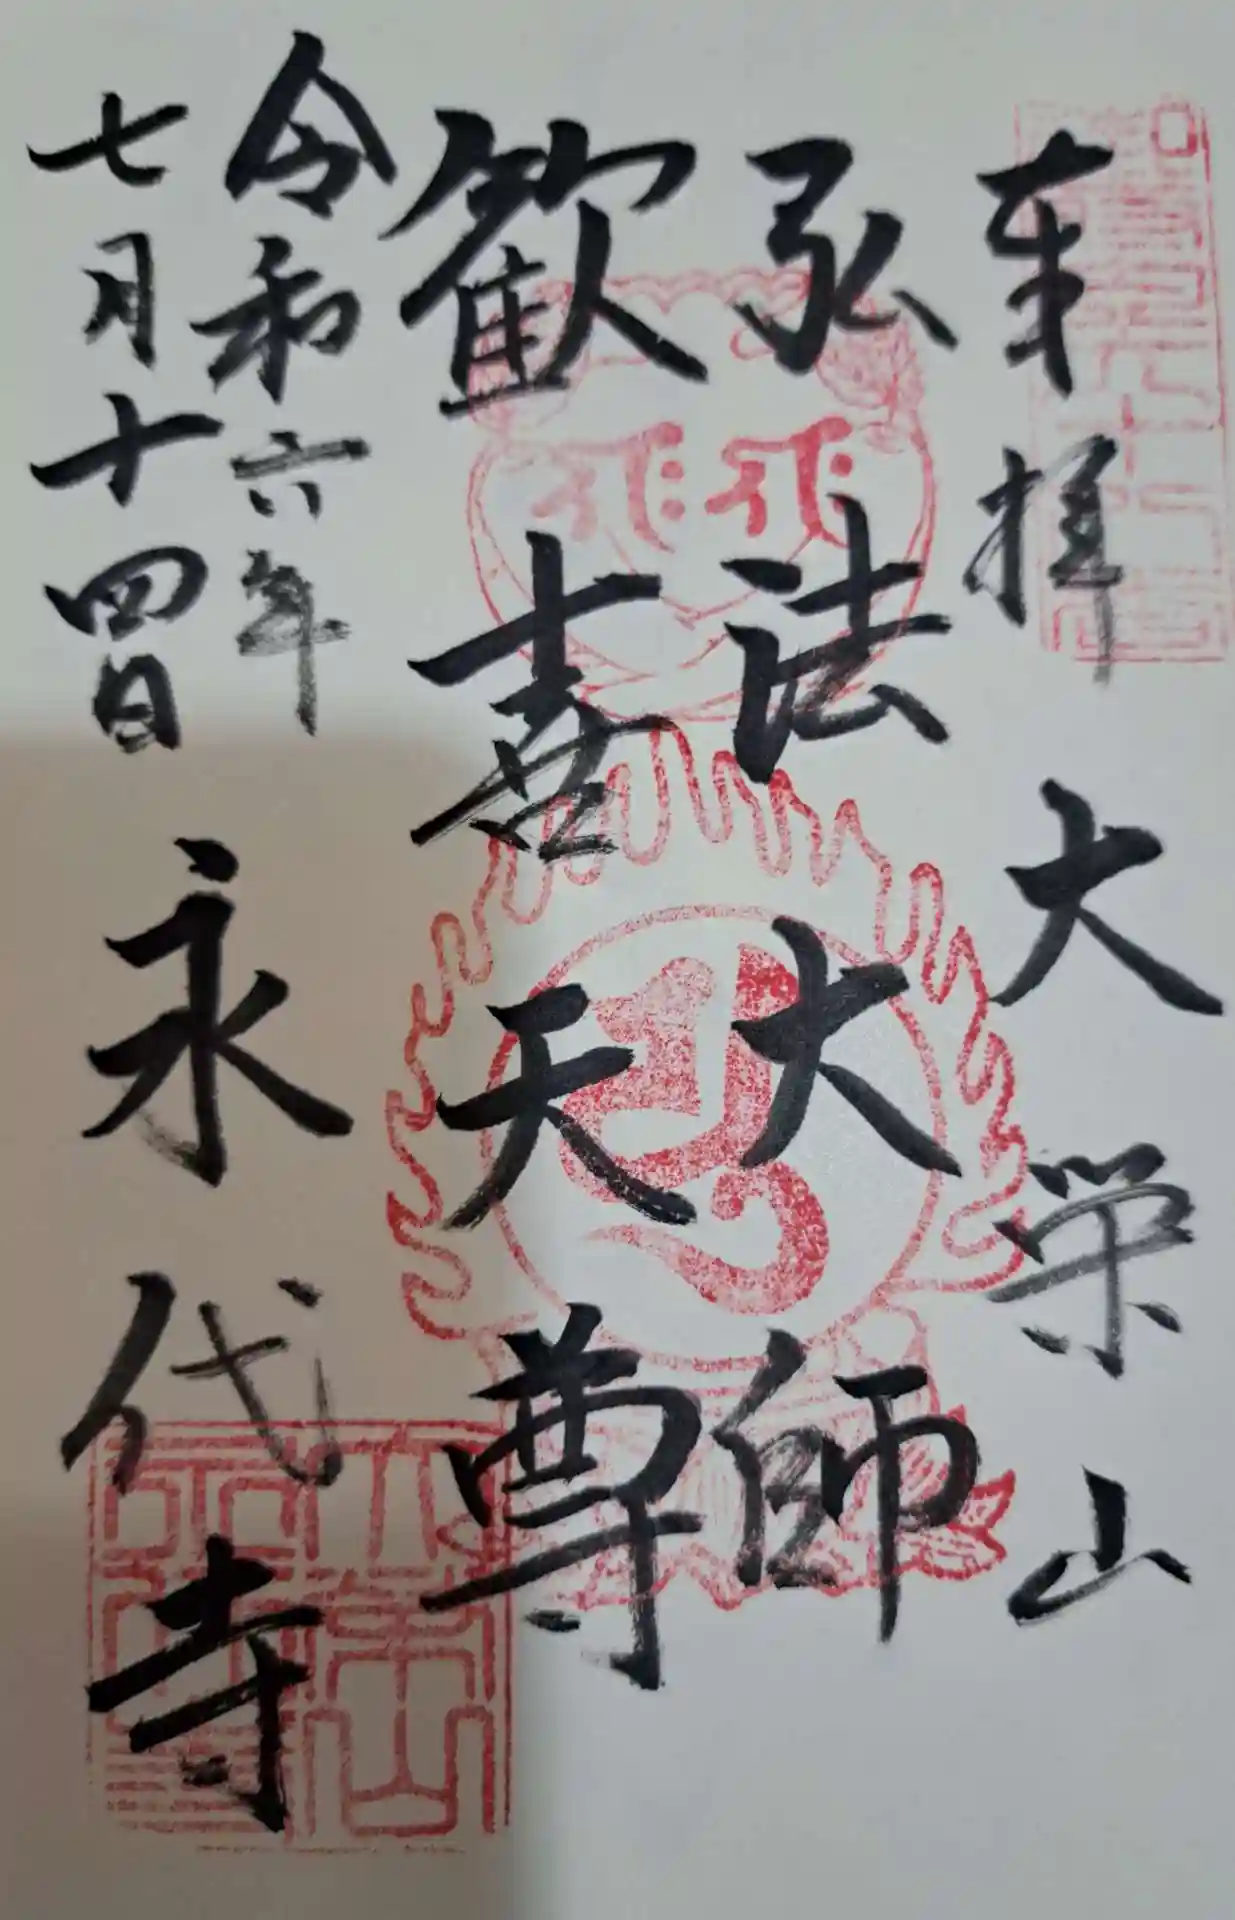 奉拝 大栄山
弘法大師
歓喜天尊
令和六年
七月十四日 永代寺